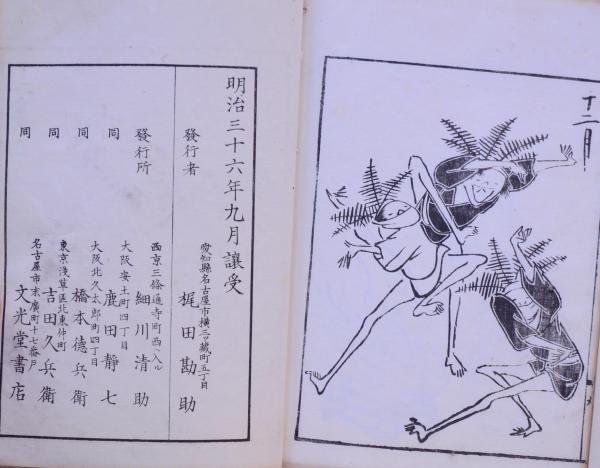 十二月
明治三十六年九月讓受
愛知縣名古屋市橫三ツ藏町五丁目
發行者 梶田勘助
西京三條通寺町西ヘ入ル
發行所 細川清助
大阪安土町四丁目
同 鹿田靜七
大阪北久太郎町四丁目
同 橋本德兵衛
東京淺草區北東仲町
同 吉田久兵衛
名古屋市末廣町十七番戶
同 文光堂書店